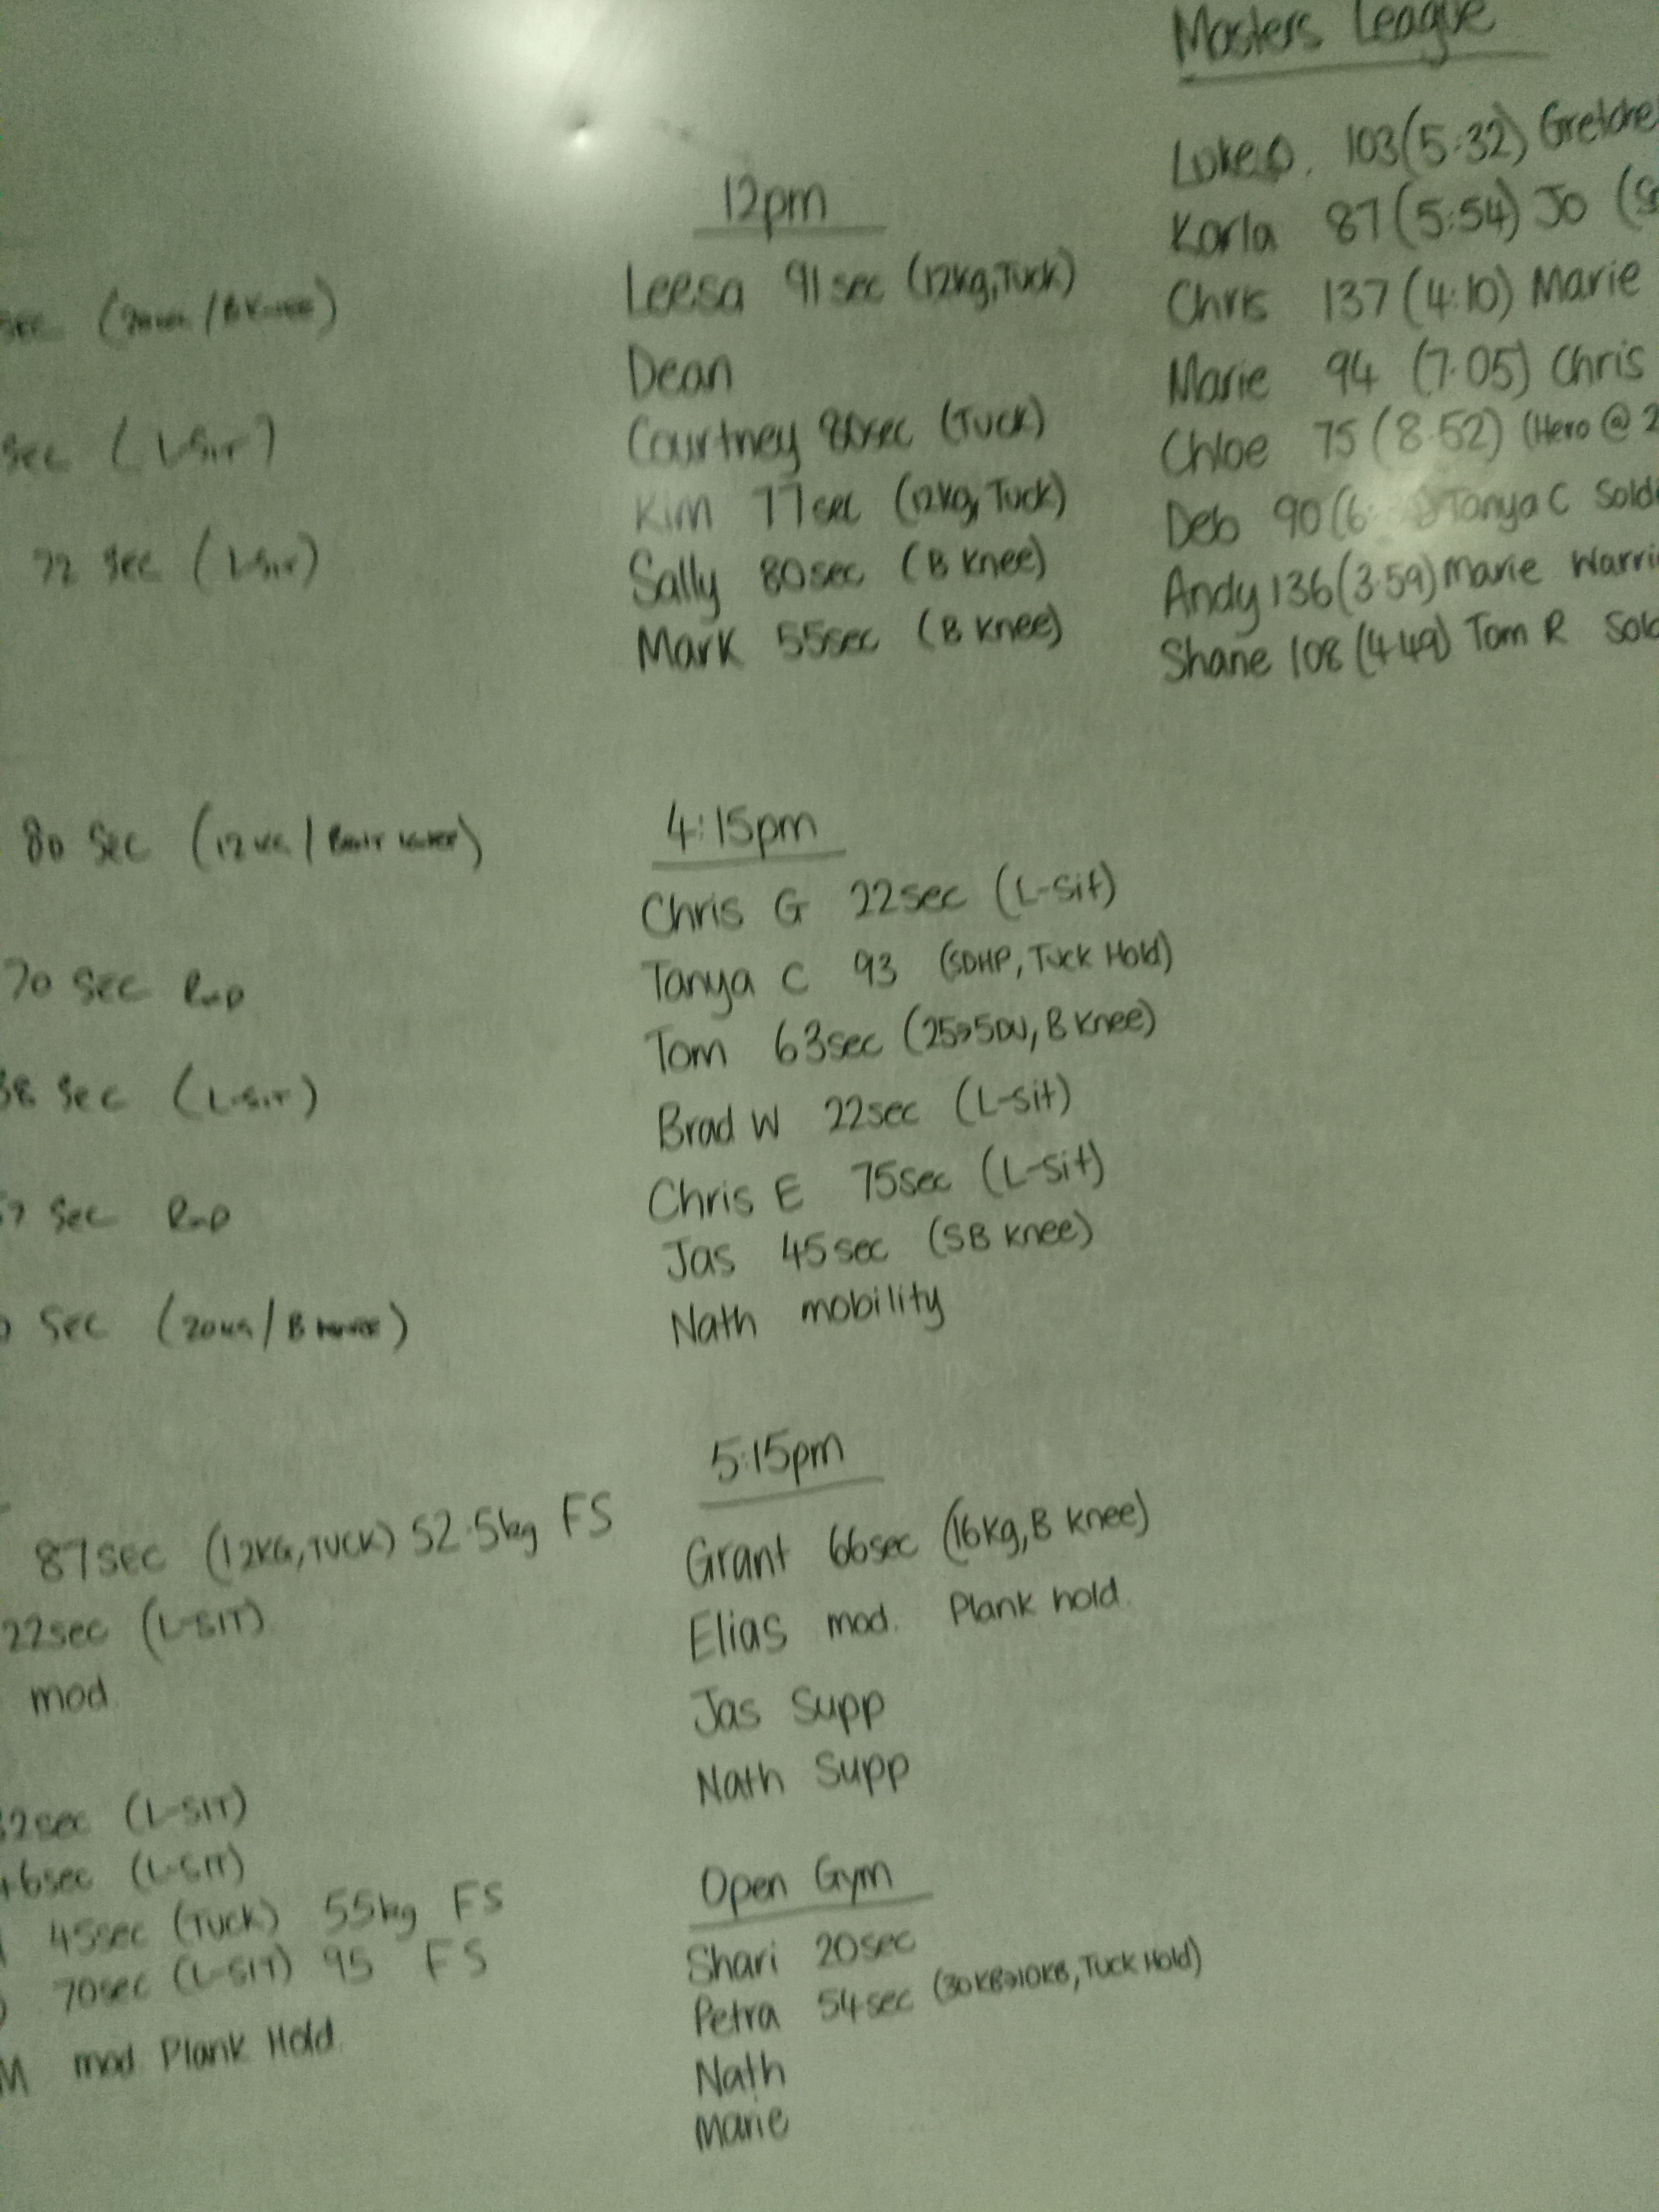 sec (
sec (L-Sit)
72 sec (L-Sit)
80 Sec (12KG/
70 Sec RxD
38 Sec (L-Sit)
Sec RxD
Sec (20KG/B
87sec (12KG, TUCK) 52.5kg FS
22sec (L-SIT)
mod
2sec (L-SIT)
46sec (L-SIT)
45sec (Tuck) 55kg FS
70sec (L-SIT) 95 FS
M mod Plank Hold.
12pm
Leesa 91sec (12kg, Tuck)
Dean
Courtney 80sec (Tuck)
Kim 77sec (12kg, Tuck)
Sally 80sec (B Knee)
Mark 55sec (B Knee)
4:15pm
Chris G 22sec (L-sit)
Tanya C 93 (SDHP, Tuck Hold)
Tom 63sec (25→5DU, B Knee)
Brad W 22sec (L-sit)
Chris E 75sec (L-sit)
Jas 45sec (SB Knee)
Nath mobility
5:15pm
Grant 66sec (16kg, B Knee)
Elias mod. Plank hold.
Jas Supp
Nath Supp
Open Gym
Shari 20sec
Petra 54sec (30KB→10KB, Tuck Hold)
Nath
Marie
Masters League
103 (5:32)
Karla 87 (5:54) Jo
Chris 137 (4:10) Marie
Marie 94 (7.05) Chris
Chloe 75 (8.52) (Hero @ 2
Deb 90 (6 Tanya C
Andy 136 (3.59) Marie
Shane 108 (4.49) Tom R